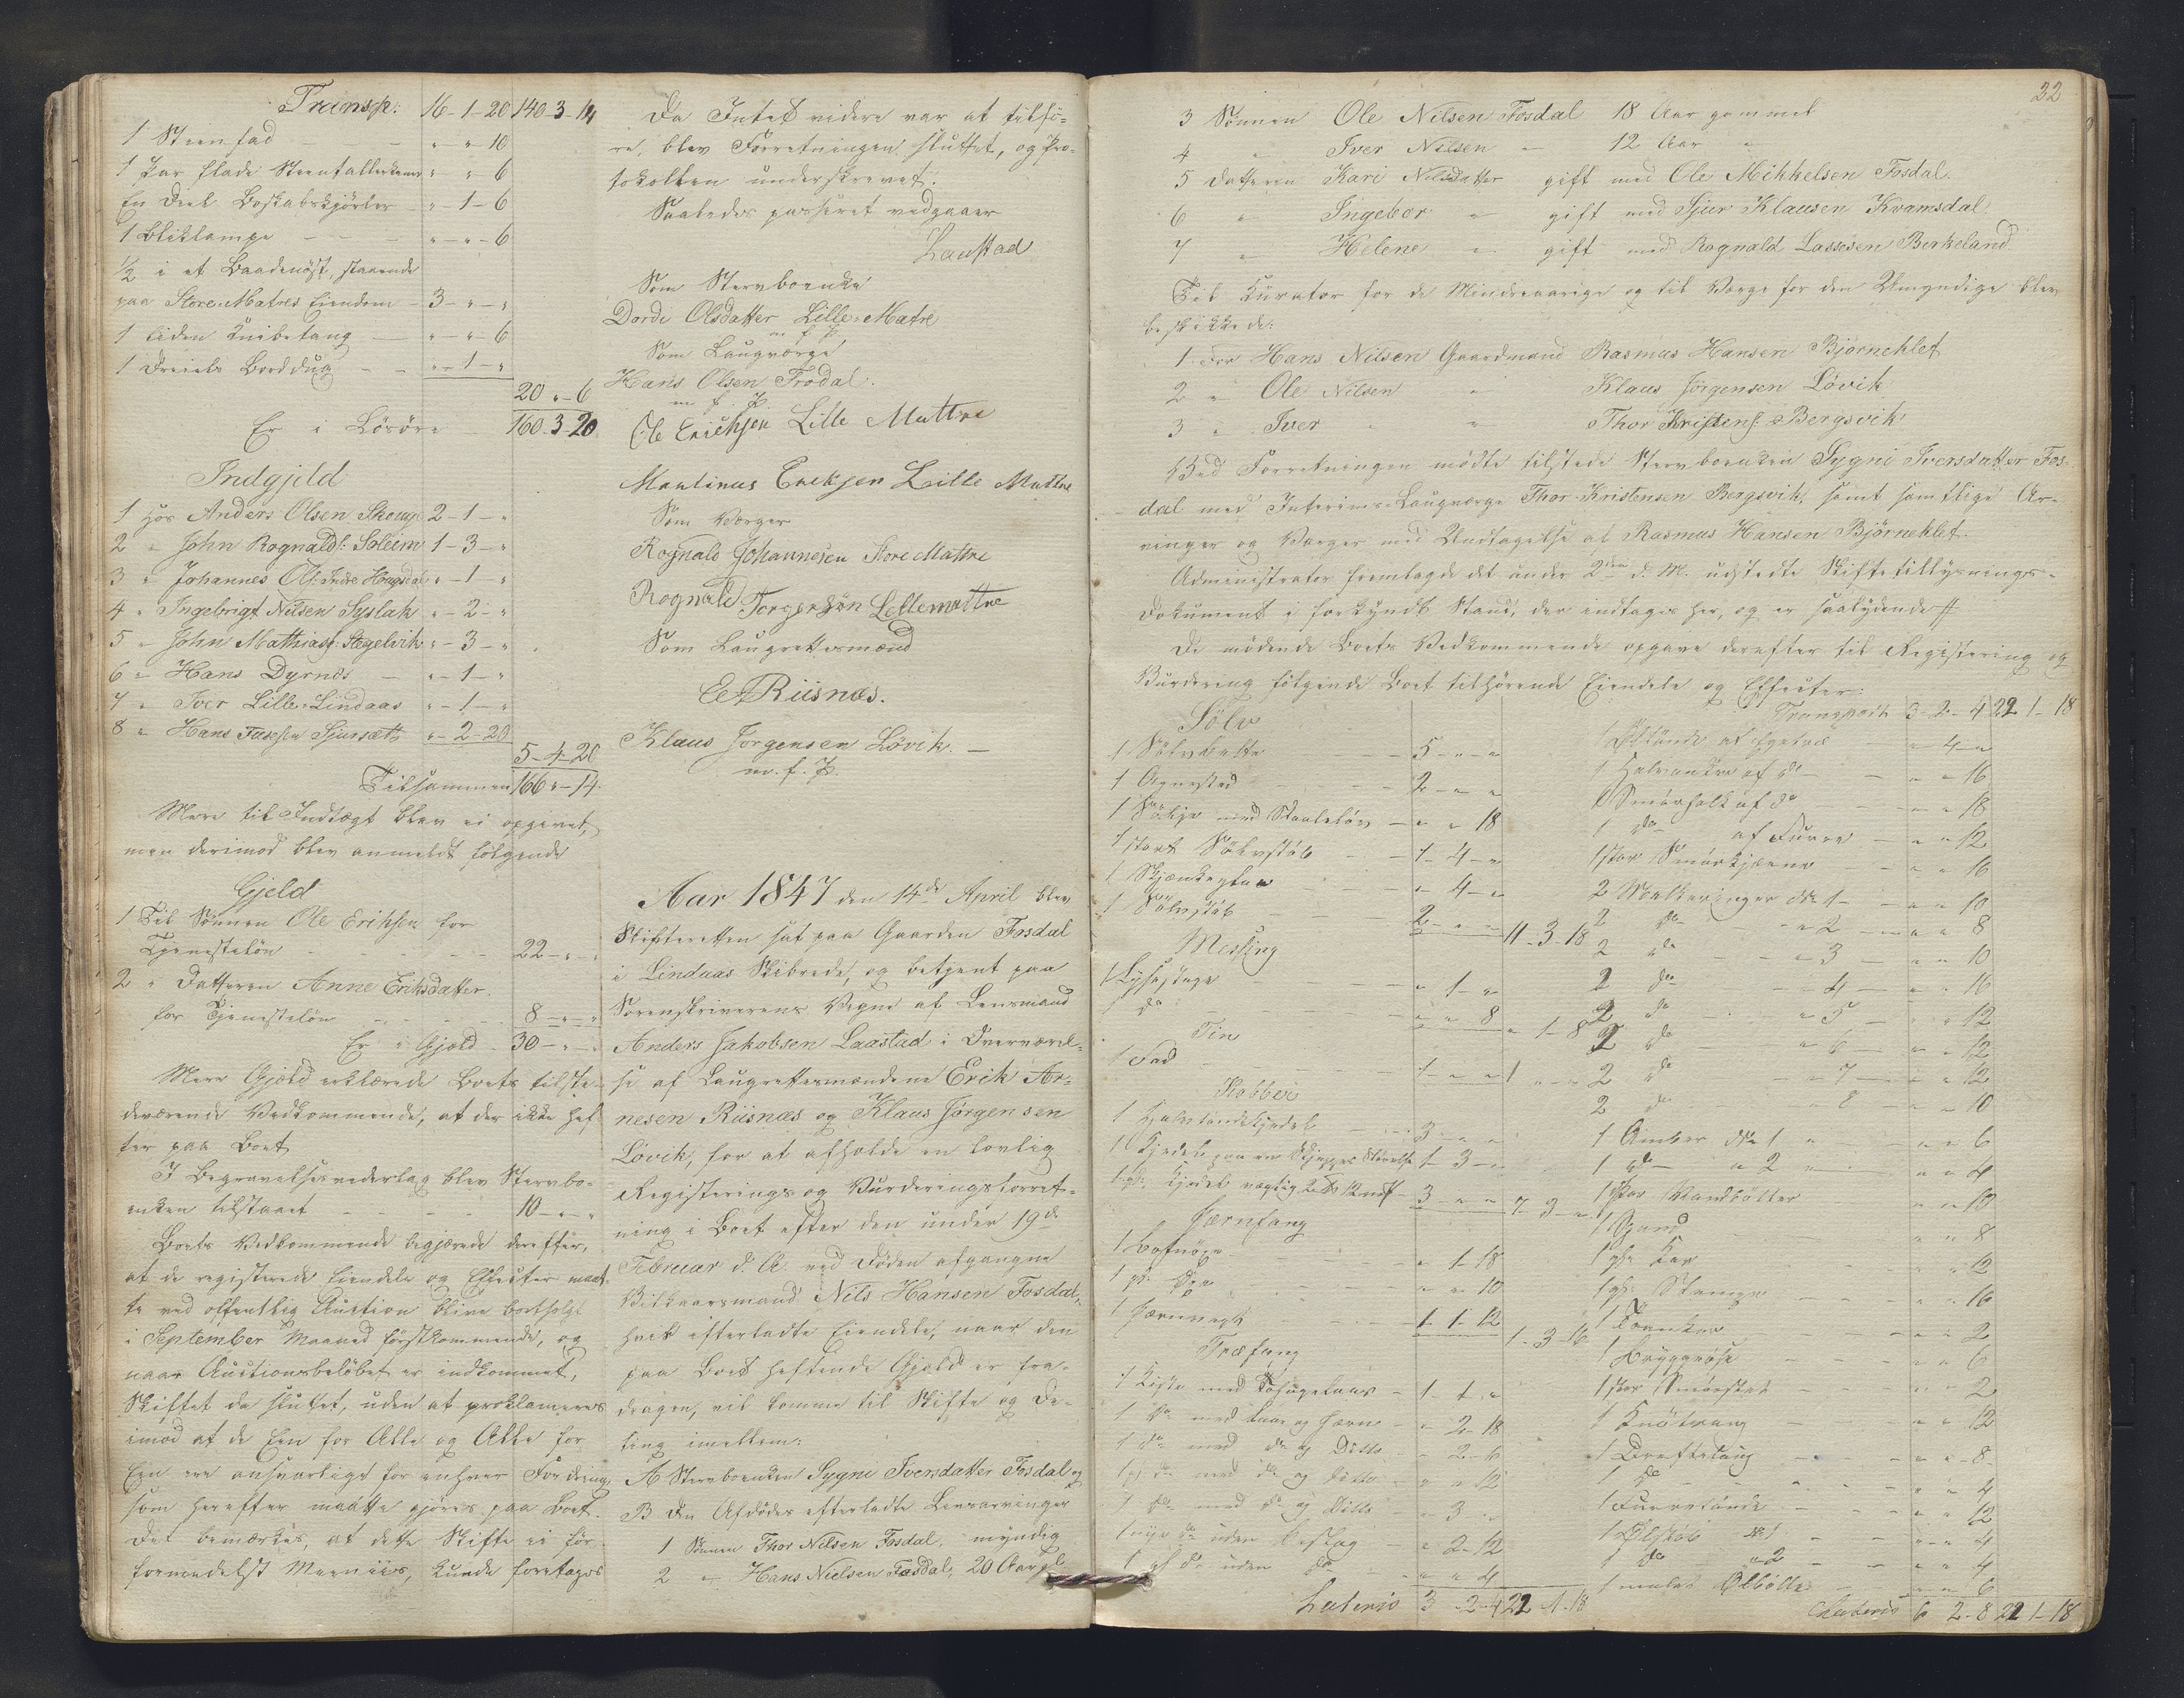 Transp: 16-1-20 140-3-14
1 Steenfad - - - " " 10
1 Par flade Steentallerkener " " 6
En Deel Boskabskjørler - " - 1 - 6
1 Bliklampe - - - " - " - 6
1/2 i et Baadenöst, staaende
paa Store-Matres Eiendom - 3 - " - "
1 liden Knibetang - " - " - 6
1 Dreiels Borddug - - " - 1 - "
20 " - 6
Er i Lösöre 160-3-20
Indgjeld
1 hos Anders Olsen Skouge 2-1- "
2 " John Rognalds: Soleim 1-3- "
3 " Johannes Ols: Indre Hougsdal " - 1 - "
4 " Ingebrigt Nilsen Syslak " - 2 - "
5 " John Mathiass:Ægelvik " - 3 - "
6 " Hans Dyrnes - " - 1 - "
7 " Iver Lille-Lindaas " - 1 - "
8 " Hans Sjursæth " - 2-20
5-4-20
Tilsammen 166 " - 14
Mere til Indtægt blev ei opgivet,
men derimod blev anmeldt følgende
Gjeld
1 Til Sönnen Ole Eriksen for
Tjenestelön - - - 22 - " - "
2 " Datteren Anne Eriksdatter
for Tjenestelön - - - 8 - " - "
Er i Gjeld - 30 - " - "
Mere Gjeld erklærede Boets tilste-
deværende Vedkommende, at der ikke hef-
ter paa Boet
I Begravelsesvederlag blev Stervbo-
enken tilstaaet - - - 10 - " - "
Boets Vedkommende begjærede derefter,
at de registerede Eiendele og Effecter maat-
te ved offentlig Auction blive bortsolgt
i September Maaned førstkommende, og
naar Auctionsbeløbet er indkommet,
Skiftet da sluttet, uden at proklameres
imod at de Een for Alle og Alle for
Een ere ansvarlige for enhver Fordring
som herefter maatte gjøres paa Boet.
Det bemærkes, at dette Skifte ei før
formedelst kunde foretages
Da Intet videre var at tilfö-
re, blev Forretningen sluttet, og Pro-
tokollen underskrevet.
Saaledes passeret vedgaaer
Laastad
Som Stervboenke
Dorde Olsdatter Lille-Matre
m. f. P.
Som Laugværge
Hans Olsen Frodal.
m. f. P.
Ole Erichsen Lille Mattre
Martinus Ericksen Lille Mattre
Som Værger
Rognald Johannesen Store Mattre
Rognald Torgersøn Lellemattre
Som Laugrettesmænd
E. Riisnæs.
Klaus Jørgensen Løvik. -
m. f. P.
Aar 1847 den 14de April blev
Skifteretten sat paa Gaarden Fosdal
i Lindaas Skibrede, og betjent paa
Sorenskriverens Vegne af Lensmand
Anders Jakobsen Laastad i Overværel-
se af Laugrettesmændene Erik Ar-
nesen Riisnæs og Klaus Jørgensen
Løvik, for at afholde en lovlig
Registerings og Vurderingsforret-
ning i Boet efter den under 19de
Februar d. A. ved Døden afgangne
Vilkaarsmand Nils Hansen Fosdal,
hvis efterladte Eiendele, naar den
paa Boet heftende Gjeld er fra-
dragen, vil komme til Skifte og De-
ling imellem:
A Stervboenken Sygni Iversdatter Fosdal og
B Den Afdødes efterladte Livsarvinger
1 Sønnen Thor Nilsen Fosdal, myndig
2 " Hans Nielsen Fosdal, 20 Aar gl
22
3 Sønnen Ole Nilsen Fosdal 18 Aar gammel
4 " Iver Nilsen " 12 Aar "
5 Datteren Kari Nilsdatter gift med Ole Mikkelsen Fosdal.
6 " Ingebor " gift med Sjur Klausen Kvamsdal
7 " Helene " gift med Rognald Lassesen Berkeland
Til Kurator for de Mindreaarige og til Værge for den Umyndige blev
beskikkede:
1 For Hans Nilsen Gaardmand Rasmus Hansen Bjørneklet
2 " Ole Nilsen " Klaus Jørgensen Løvik
3 " Iver " " Thor Kristens: Bergsvik
Ved Forretningen mødte tilstede Stervboenken Sygni Iversdatter Fos-
dal med Interims-Laugværge Thor Kristensen Bergsvik, samt samtlige Ar-
vinger og Værger med Undtagelse af Rasmus Hansen Bjørneklet.
Administrator fremlagde det under 2den d. M. udstedte Skiftetillysnings-
Dokument i forkyndt Stand, der indtages her, og er saalydende #
De mødende Boets Vedkommende opgave derefter til Registering og
Vurdering følgende Boet tilhørende Eiendele og Effecter:
Sölv
1 Sølvbelte - - 5 - " - "
1 - - 2 - " - "
1 med - " " 18
1 stort Sølvstøb - - 1-4- "
1 - - " 4 - "
1 Sølvstøb - - 2 - " - " 11-3-18
Messing
1 Lysestage - - " 1 - "
1 do - - " " 8 " 1-8
Tin
1 Fad - - 1 - " - " 1 " - "
Kobber
1 Halvtøndekjedel - - 3 - " - "
1 Kjedel paa en Skjeppes Størrelse 1-3- "
1 gl. Kjedel 3 - " - " 7-3- "
Jærnfang
1 - - " 1-18
1 gl. do - - " " 10
1 - - 1-1-12
1-3-16
Træfang
1 Kiste med - 1-1- "
1 do med Laas og Jærn - " 2-18
1 do med do og Ditto - " 2-6
1 gl. do med do og Ditto - " " 12
1 do med do og Ditto - " 3 - "
1 do uden Beslag - " 2-12
1 gl do uden do - " " 4
Lateris 3-2-4 22-1-18
Transport 3-2-4 22 1-18
1 Øltønde af Egetræ - " 4 - "
1 Halvanker af do - " " 16
1 af do - " " 18
1 do af Furre - " " 12
1 stor Smørkjærne - " " 16
2 Melkeringer No 1 - " " 10
2 do " 2 - " " 8
2 do " 3 - " " 10
2 do " 4 - " " 16
2 do " 5 - " " 12
2 do " 6 - " " 12
2 do " 7 - " " 12
2 do " 8 - " " 10
1 Ambar No 1 - " " 6
1 do " 2 - " " 4
1 Par Vandbøtter - " " 10
1 Spand - " " 8
1 gl. Kar - " " 12
1 gl. Stampe - " " 16
1 - " " 2
1 - " " 6
1 stor - " " 2
1 - " " 12
1 - " " 8
1 do - " " 4
1 Furretønde - " " 12
1 Ølstøb No 1 - " " 4
1 do " 2 - " " 4
1 malet Ølbolle - " " 6
Lateris 6 2-8 22 1-18